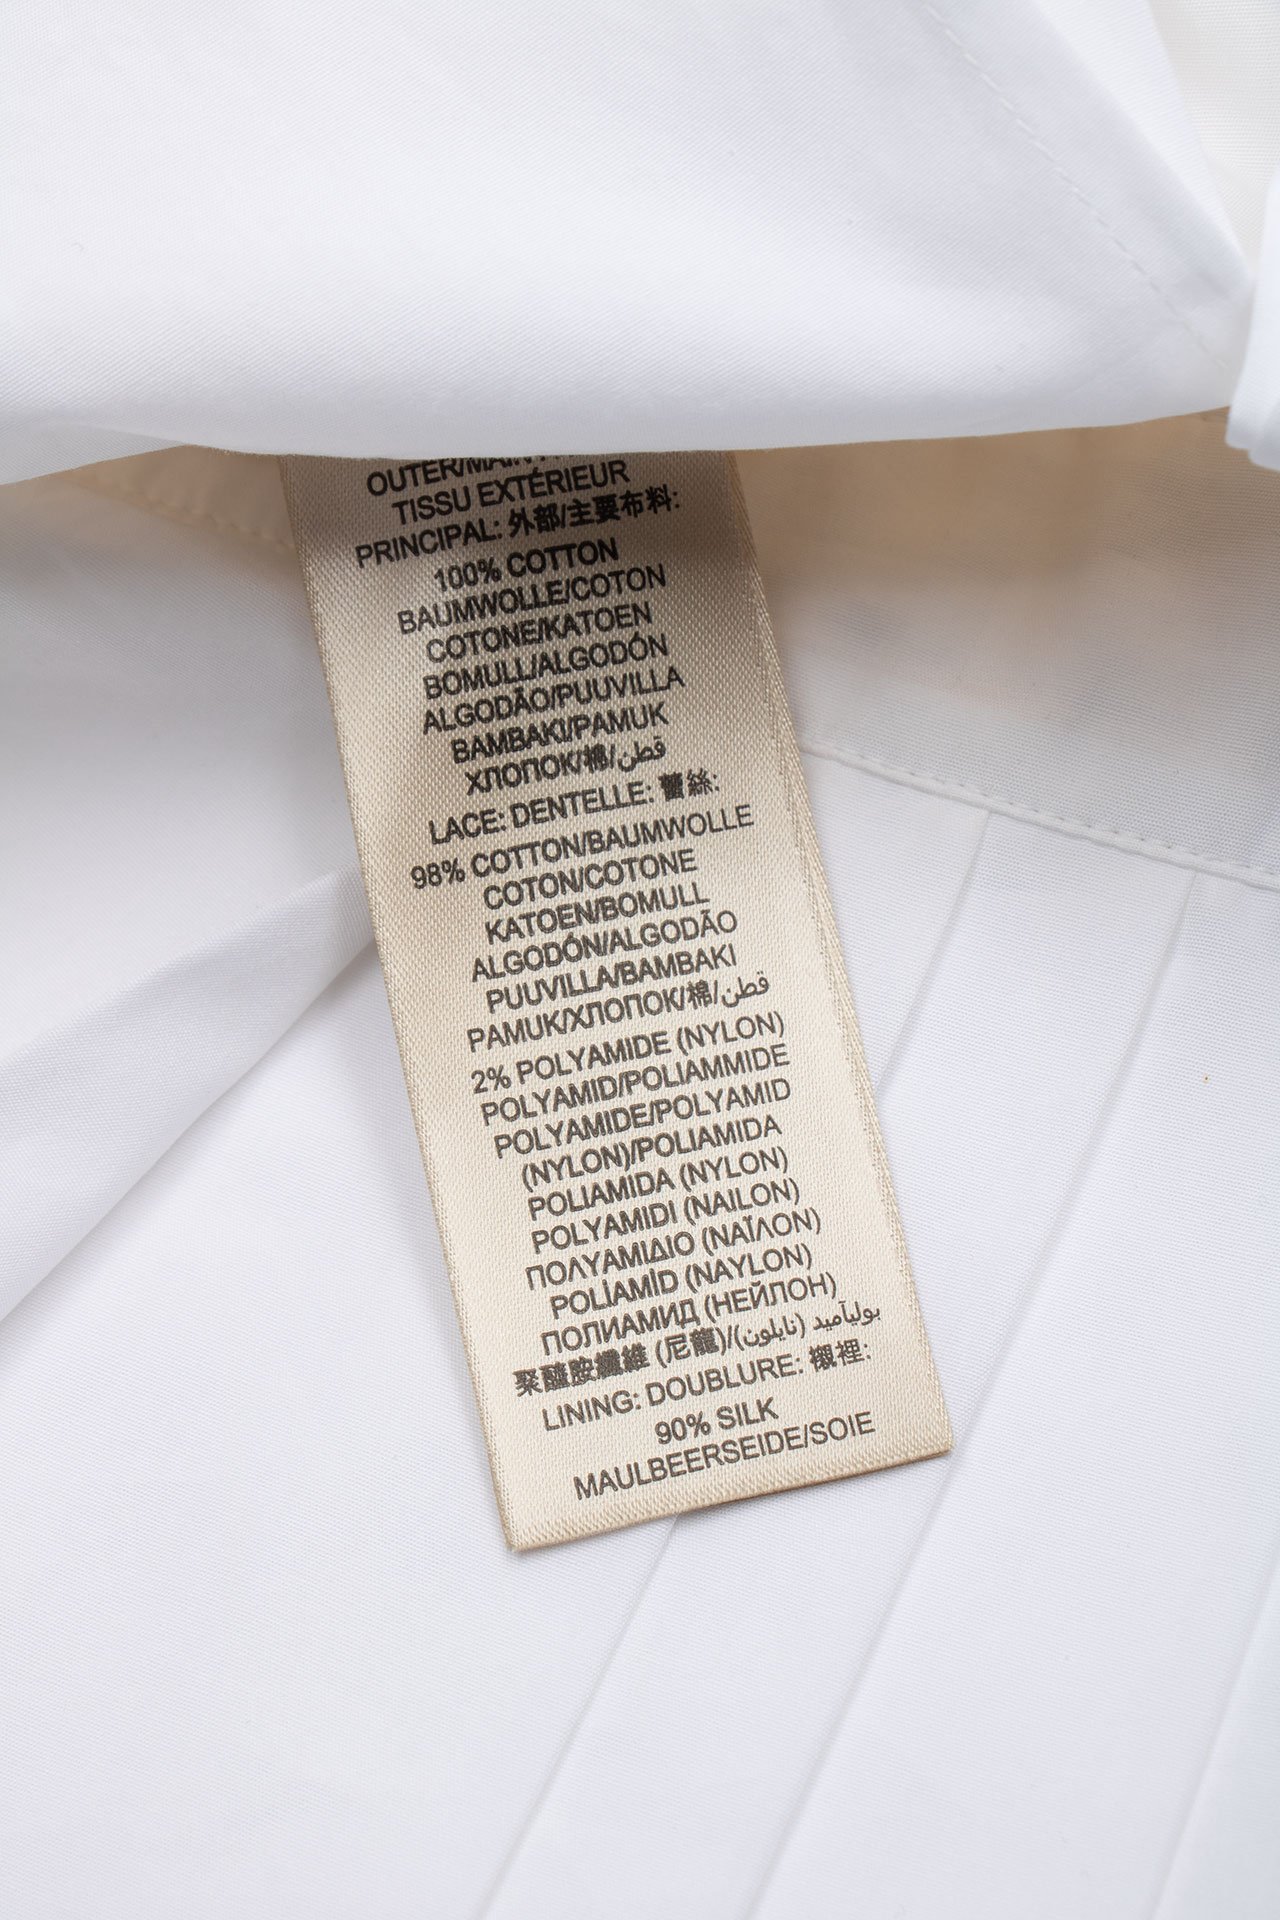 OUTER/MAIN
TISSU EXTÉRIEUR
PRINCIPAL: 外部/主要布料:
100% COTTON
BAUMWOLLE/COTON
COTONE/KATOEN
BOMULL/ALGODÓN
ALGODÃO/PUUVILLA
BAMBAKI/PAMUK
ХЛОПОК/棉/قطن
LACE: DENTELLE: 蕾絲:
98% COTTON/BAUMWOLLE
COTON/COTONE
KATOEN/BOMULL
ALGODÓN/ALGODÃO
PUUVILLA/BAMBAKI
PAMUK/ХЛОПОК/棉/قطن
2% POLYAMIDE (NYLON)
POLYAMID/POLIAMMIDE
POLYAMIDE/POLYAMID
(NYLON)/POLIAMIDA
POLIAMIDA (NYLON)
POLYAMIDI (NAILON)
ΠΟΛΥΑΜΙΔΙΟ (ΝΑΪΛΟΝ)
POLİAMİD (NAYLON)
ПОЛИАМИД (НЕЙЛОН)
聚醯胺纖維 (尼龍)/بوليآميد (نايلون)
LINING: DOUBLURE: 襯裡:
90% SILK
MAULBEERSEIDE/SOIE